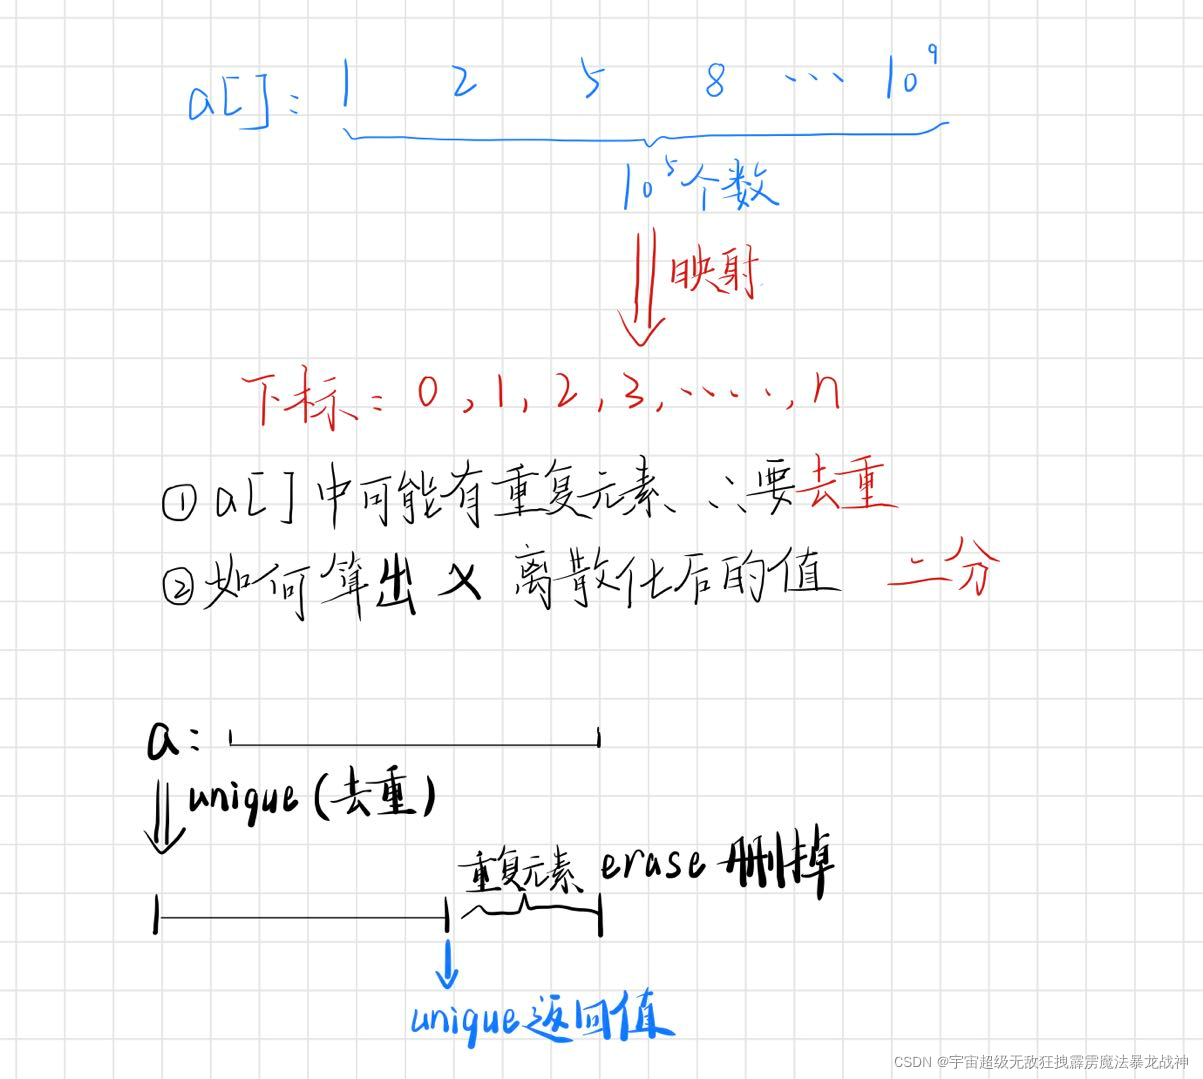 a[]: 1 2 5 8 ... 10⁹
10⁵个数
映射
下标: 0, 1, 2, 3, ......, n
① a[]中可能有重复元素、∴要去重
② 如何算出 x 离散化后的值 二分
a:
unique (去重)
重复元素 erase 删掉
unique返回值
CSDN @宇宙超级无敌狂拽霹雳魔法暴龙战神